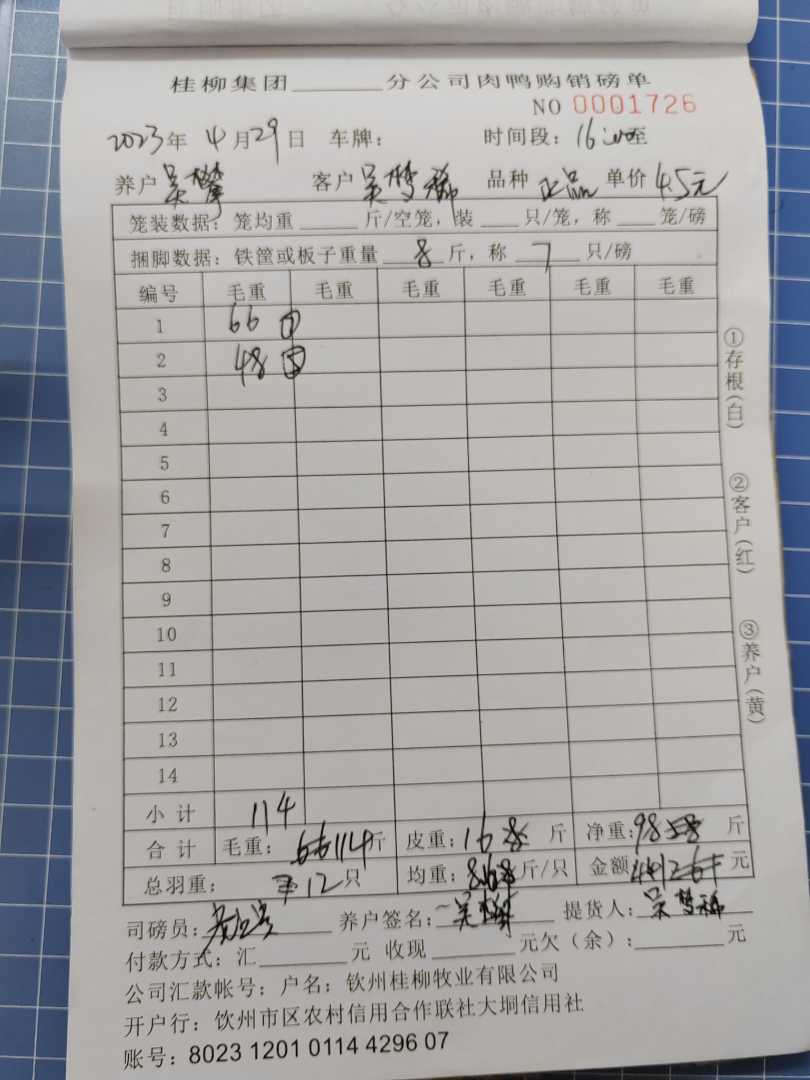 桂柳集团______分公司肉鸭购销磅单
NO 0001726
2023年 4月29日 车牌: 时间段: 16:00至
养户 吴攀 客户 吴梦稀 品种 正品 单价 4.5元
笼装数据: 笼均重 ____ 斤/空笼, 装 ____ 只/笼, 称 ____ 笼/磅
捆脚数据: 铁筐或板子重量 8 斤, 称 7 只/磅
编号 毛重 毛重 毛重 毛重 毛重 毛重
1 66 ⑦
2 48 ⑤
3
4
5
6
7
8
9
10
11
12
13
14
小计 114
合计 毛重: 114斤 皮重: 16 斤 净重: 98 斤
总羽重: 12只 均重: 斤/只 金额 元
司磅员: 养户签名: 吴攀 提货人: 吴梦稀
付款方式: 汇______元 收现______元欠(余): ______元
公司汇款帐号: 户名: 钦州桂柳牧业有限公司
开户行: 钦州市区农村信用合作联社大垌信用社
账号: 8023 1201 0114 4296 07
①存根(白)
②客户(红)
③养户(黄)